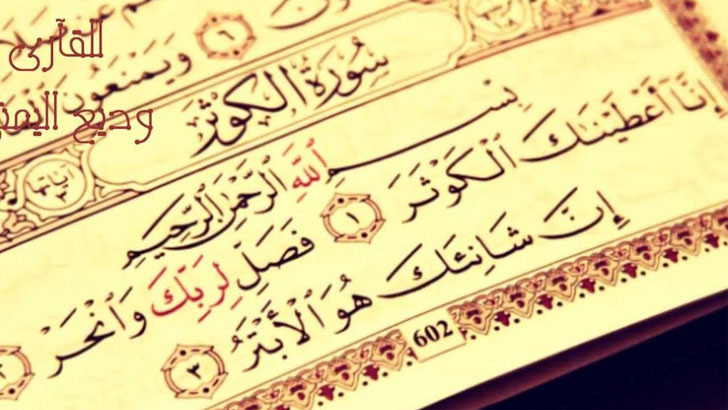 القآرى
وديع اليمن
ونَ ٦ وَيَمْنَعُونَ
سُورَةُ الكَوْثَرِ
آياتها ٣
بِسْمِ ٱللَّهِ ٱلرَّحْمَٰنِ ٱلرَّحِيمِ
إِنَّآ أَعْطَيْنَٰكَ ٱلْكَوْثَرَ ١ فَصَلِّ لِرَبِّكَ وَٱنْحَرْ ٢
إِنَّ شَانِئَكَ هُوَ ٱلْأَبْتَرُ ٣
602